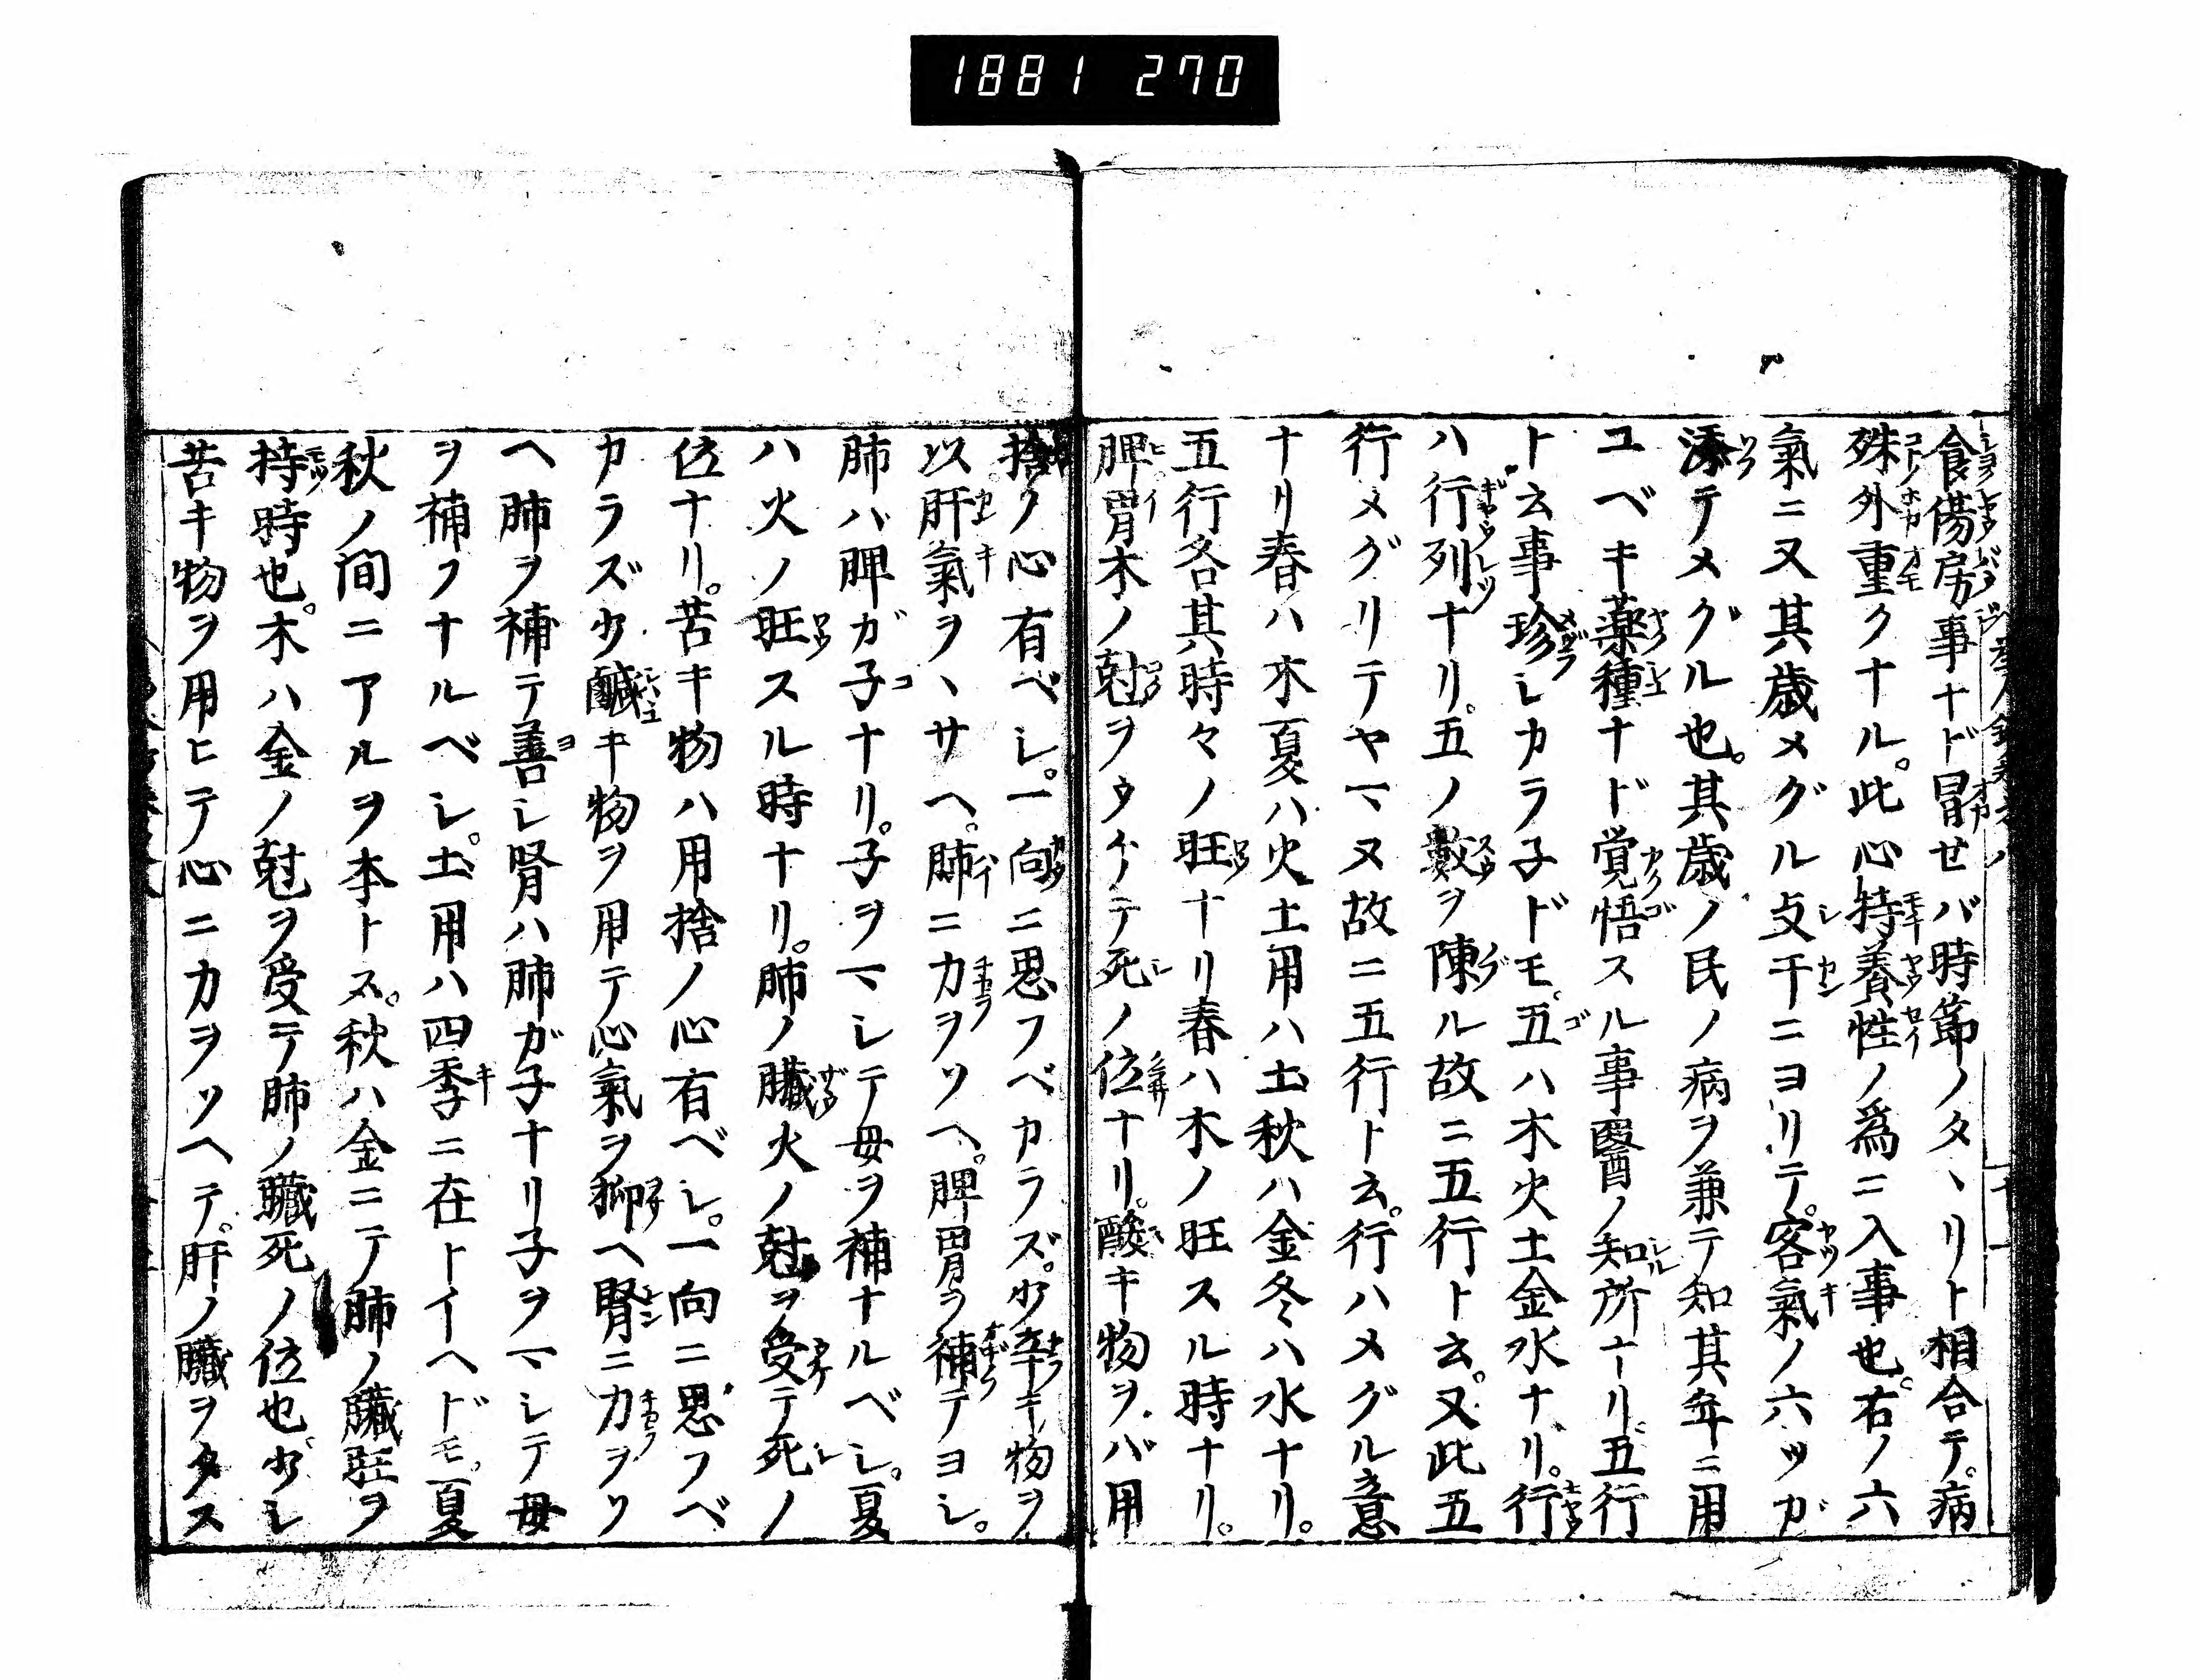 1881 270
食傷房事ナド冒せバ時節ノタヽリト相合テ。病
殊外重クナル。此心持養性ノ爲ニ入事也。右ノ六
氣ニ又其歳メグル支干ニヨリテ。客氣ノ六ツガ
添テメグル也。其歳ノ民ノ病ヲ兼テ知其年ニ用
ユベキ薬種ナド覚悟スル事醫ノ知所ナリ。五行
ト云事珍シカラ子ドモ。五ハ木火土金水ナリ。行
ハ行列ナリ。五ノ數ヲ陳ル故ニ五行ト云。又此五
行メグリテヤマヌ故ニ五行ト云。行ハメグル意
ナリ春ハ木夏ハ火土用ハ土秋ハ金冬ハ水ナリ。
五行各其時々ノ旺ナリ春ハ木ノ旺スル時ナリ。
脾胃木ノ尅ヲウケテ死ノ位ナリ。酸キ物ヲバ用
捨ノ心有ベシ。一向ニ思フベカラズ。少辛キ物ヲ
以肝氣ヲヽサヘ。肺ニ力ヲソヘ。脾胃ヲ補テヨシ。
肺ハ脾ガ子ナリ。子ヲマシテ母ヲ補ナルベシ。夏
ハ火ノ旺スル時ナリ。肺ノ臓火ノ尅ヲ受テ死ノ
位ナリ。苦キ物ハ用捨ノ心有ベシ。一向ニ思フベ
カラズ少鹹キ物ヲ用テ心氣ヲ抑ヘ腎ニ力ヲソ
ヘ肺ヲ補テ善シ腎ハ肺ガ子ナリ子ヲマシテ母
ヲ補フナルベシ。土用ハ四季ニ在トイヘドモ。夏
秋ノ間ニアルヲ本トス。秋ハ金ニテ肺ノ臓旺ヲ
持時也。木ハ金ノ尅ヲ受テ肺ノ臓死ノ位也。少シ
苦キ物ヲ用ヒテ心ニ力ヲソヘテ。肝ノ臓ヲタス